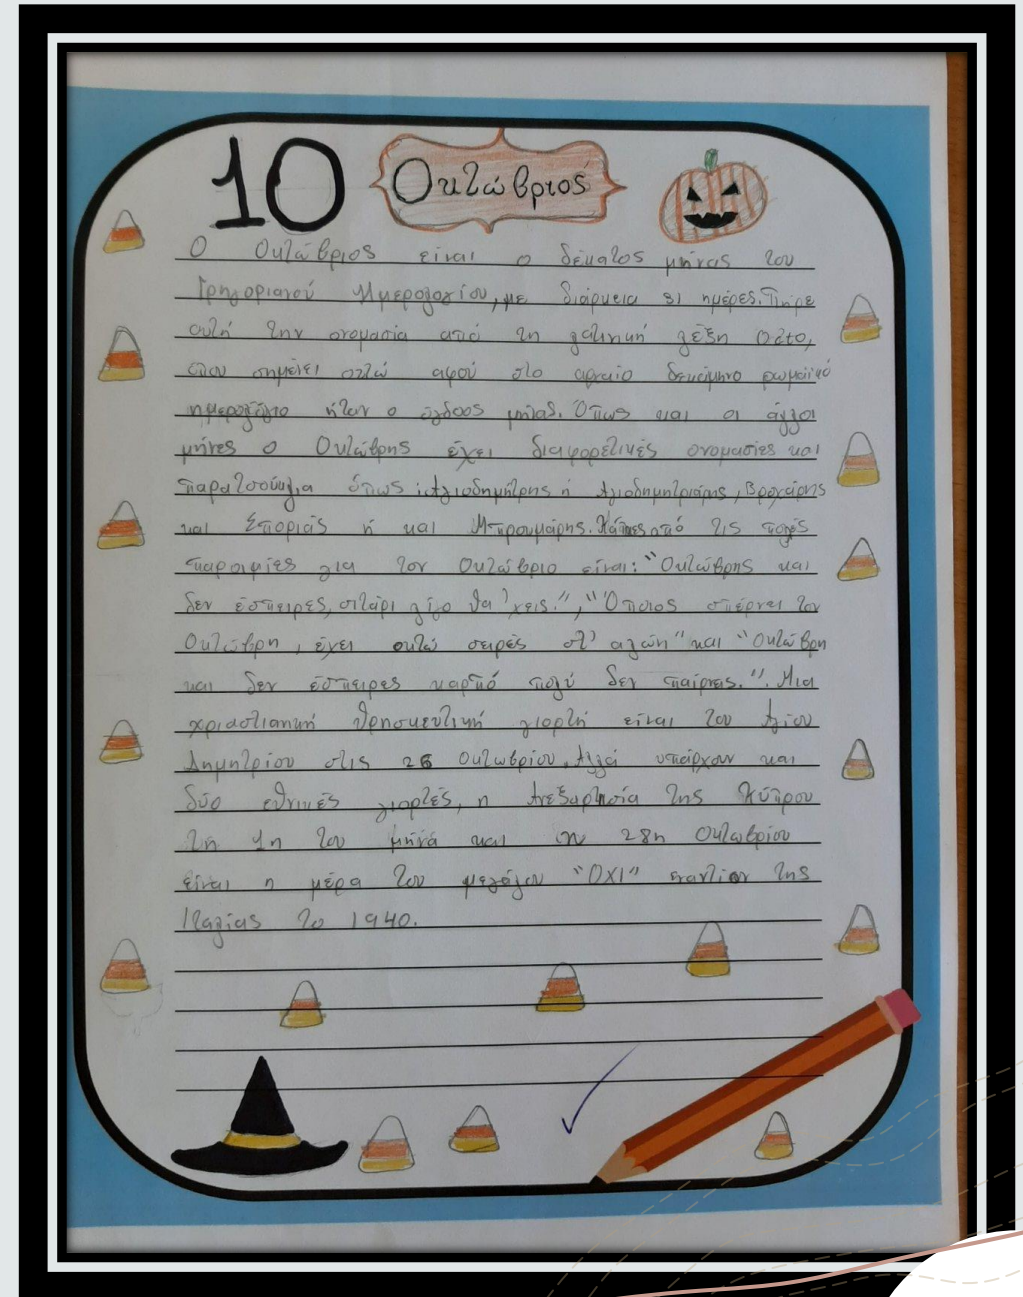 10 Οκτώβριος
Ο Οκτώβριος είναι ο δέκατος μήνας του
Γρηγοριανού Ημερολογίου, με διάρκεια 31 ημέρες. Πήρε
αυτή την ονομασία από τη λατινική λέξη Octo,
που σημαίνει οκτώ αφού στο αρχαίο δεκάμηνο ρωμαϊκό
ημερολόγιο ήταν ο όγδοος μήνας. Όπως και οι άλλοι
μήνες ο Οκτώβρης έχει διαφορετικές ονομασίες και
παρατσούκλια όπως: Αγιοδημήτρης ή Αγιοδημητριάρης, Βροχάρης
και Σποριάς ή και Μπρουμάρης. Κάποιες από τις πολλές
παροιμίες για τον Οκτώβριο είναι: "Οκτώβρης και
δεν έσπειρες, σιτάρι λίγο θα 'χεις.", "Όποιος σπέρνει τον
Οκτώβρη, έχει οκτώ σειρές στ' αλώνι" και "Οκτώβρη
και δεν έσπειρες καρπό πολύ δεν παίρνεις.". Μια
χριαστιανική θρησκευτική γιορτή είναι του Αγίου
Δημητρίου στις 26 Οκτωβρίου. Αλλά υπάρχουν και
δύο εθνικές γιορτές, η Ανεξαρτησία της Κύπρου
τη 1η του μήνα και τη 28η Οκτωβρίου
είναι η μέρα του μεγάλου "ΟΧΙ" εναντίον της
Ιταλίας το 1940.